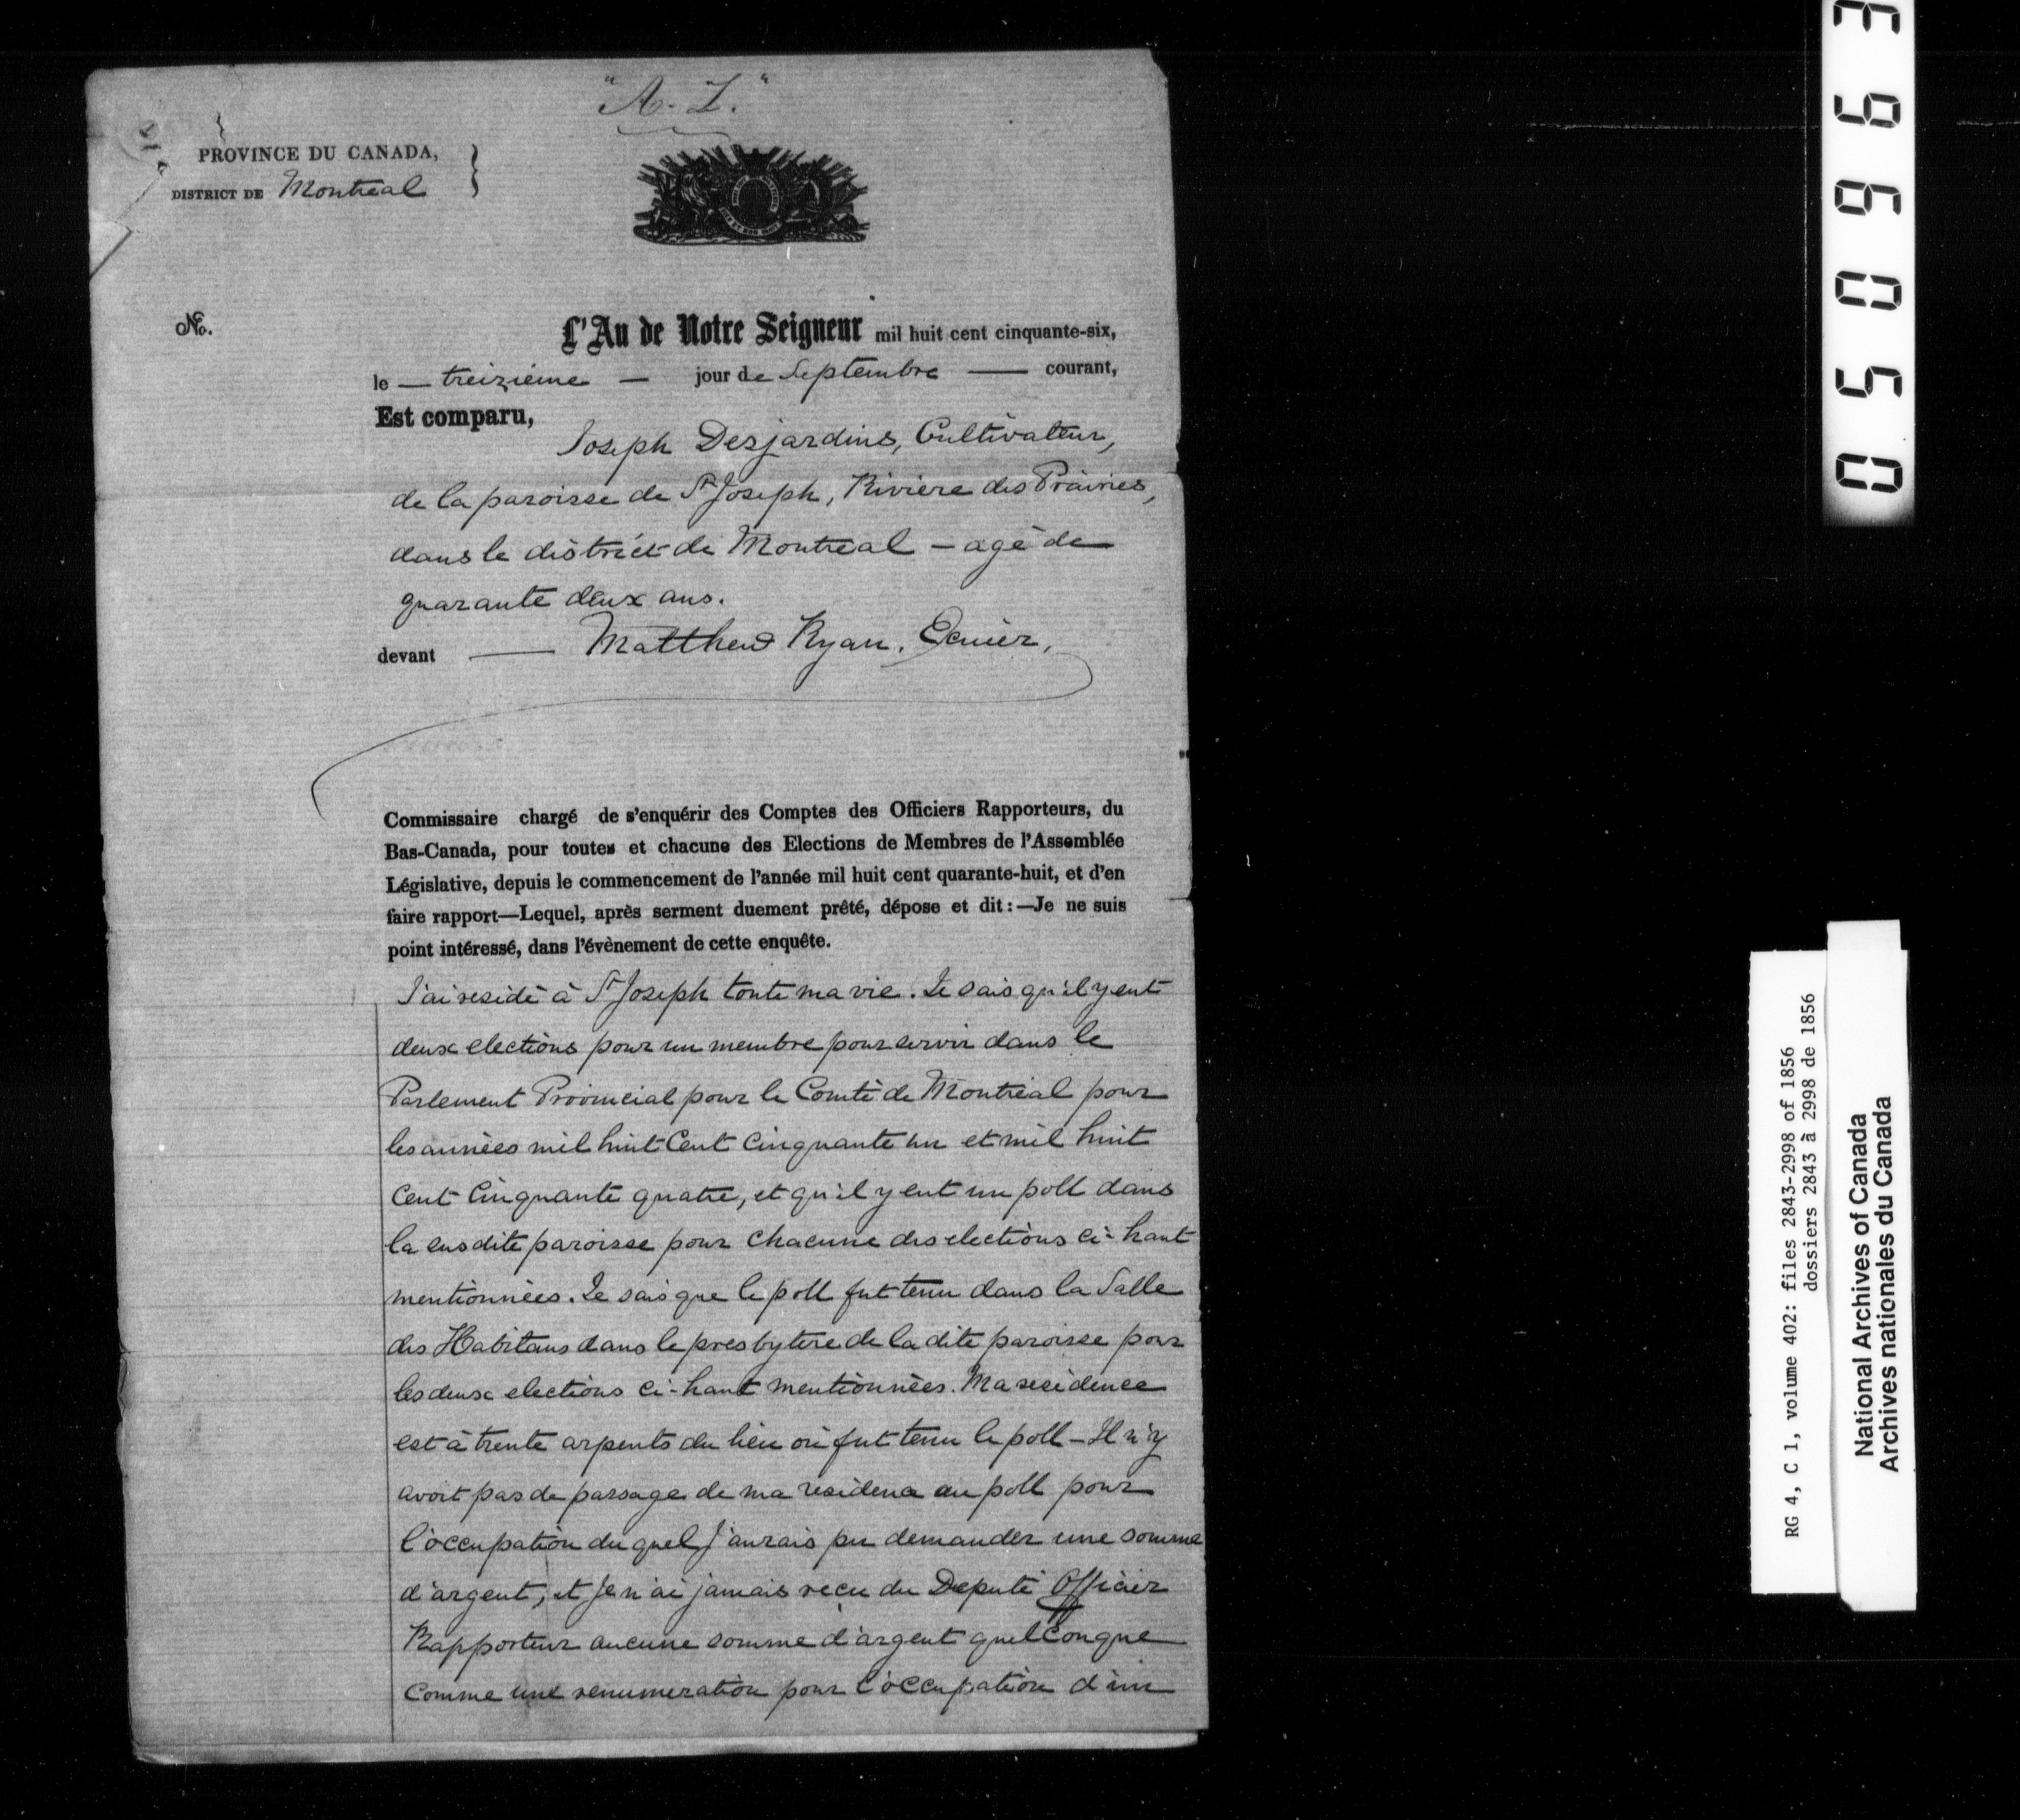 "A. Z."
PROVINCE DU CANADA,
DISTRICT DE Montreal
No.
L'An de Notre Seigneur mil huit cent cinquante-six,
le — treizième — jour de Septembre — courant,
Est comparu,
Joseph Desjardins, Cultivateur,
de la paroisse de St Joseph, Rivière des Prairies,
dans le district de Montreal — agé de
quarante deux ans.
devant — Matthew Ryan, Ecuier,
Commissaire chargé de s'enquérir des Comptes des Officiers Rapporteurs, du
Bas-Canada, pour toutes et chacune des Elections de Membres de l'Assemblée
Législative, depuis le commencement de l'année mil huit cent quarante-huit, et d'en
faire rapport—Lequel, après serment duement prêté, dépose et dit:—Je ne suis
point intéressé, dans l'évènement de cette enquête.
J'ai residé à St Joseph toute ma vie. Je sais qu'il y eut
deux elections pour un membre pour servir dans le
Parlement Provincial pour le Comté de Montréal pour
les années mil huit Cent Cinquante un et mil huit
Cent Cinquante quatre, et qu'il y eut un poll dans
la susdite paroisse pour chacune des elections ci-haut
mentionnées. Je sais que le poll fut tenu dans la Salle
des Habitans dans le presbytere de la dite paroisse pour
les deux elections ci-haut mentionnées. Ma residence
est à trente arpents du lieu où fut tenu le poll — Il n'y
avoit pas de passage de ma residence au poll pour
l'occupation du quel j'aurais pu demander une somme
d'argent, et Je n'ai jamais reçu du Deputé Officier
Rapporteur aucune somme d'argent quelconque
comme une renumeration pour l'occupation d'un
050963
RG 4, C 1, volume 402: files 2843-2998 of 1856
dossiers 2843 à 2998 de 1856
National Archives of Canada
Archives nationales du Canada